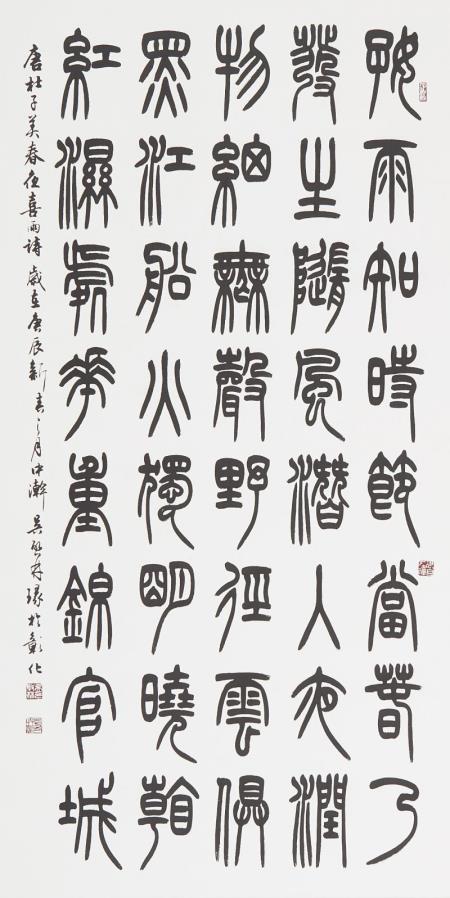 好雨知時節當春乃
發生隨風潛入夜潤
物細無聲野徑雲俱
黑江船火獨明曉看
紅濕處華重錦官城
唐杜子美春夜喜雨詩 歲在庚辰新春之月中澣 吳篆於彰化